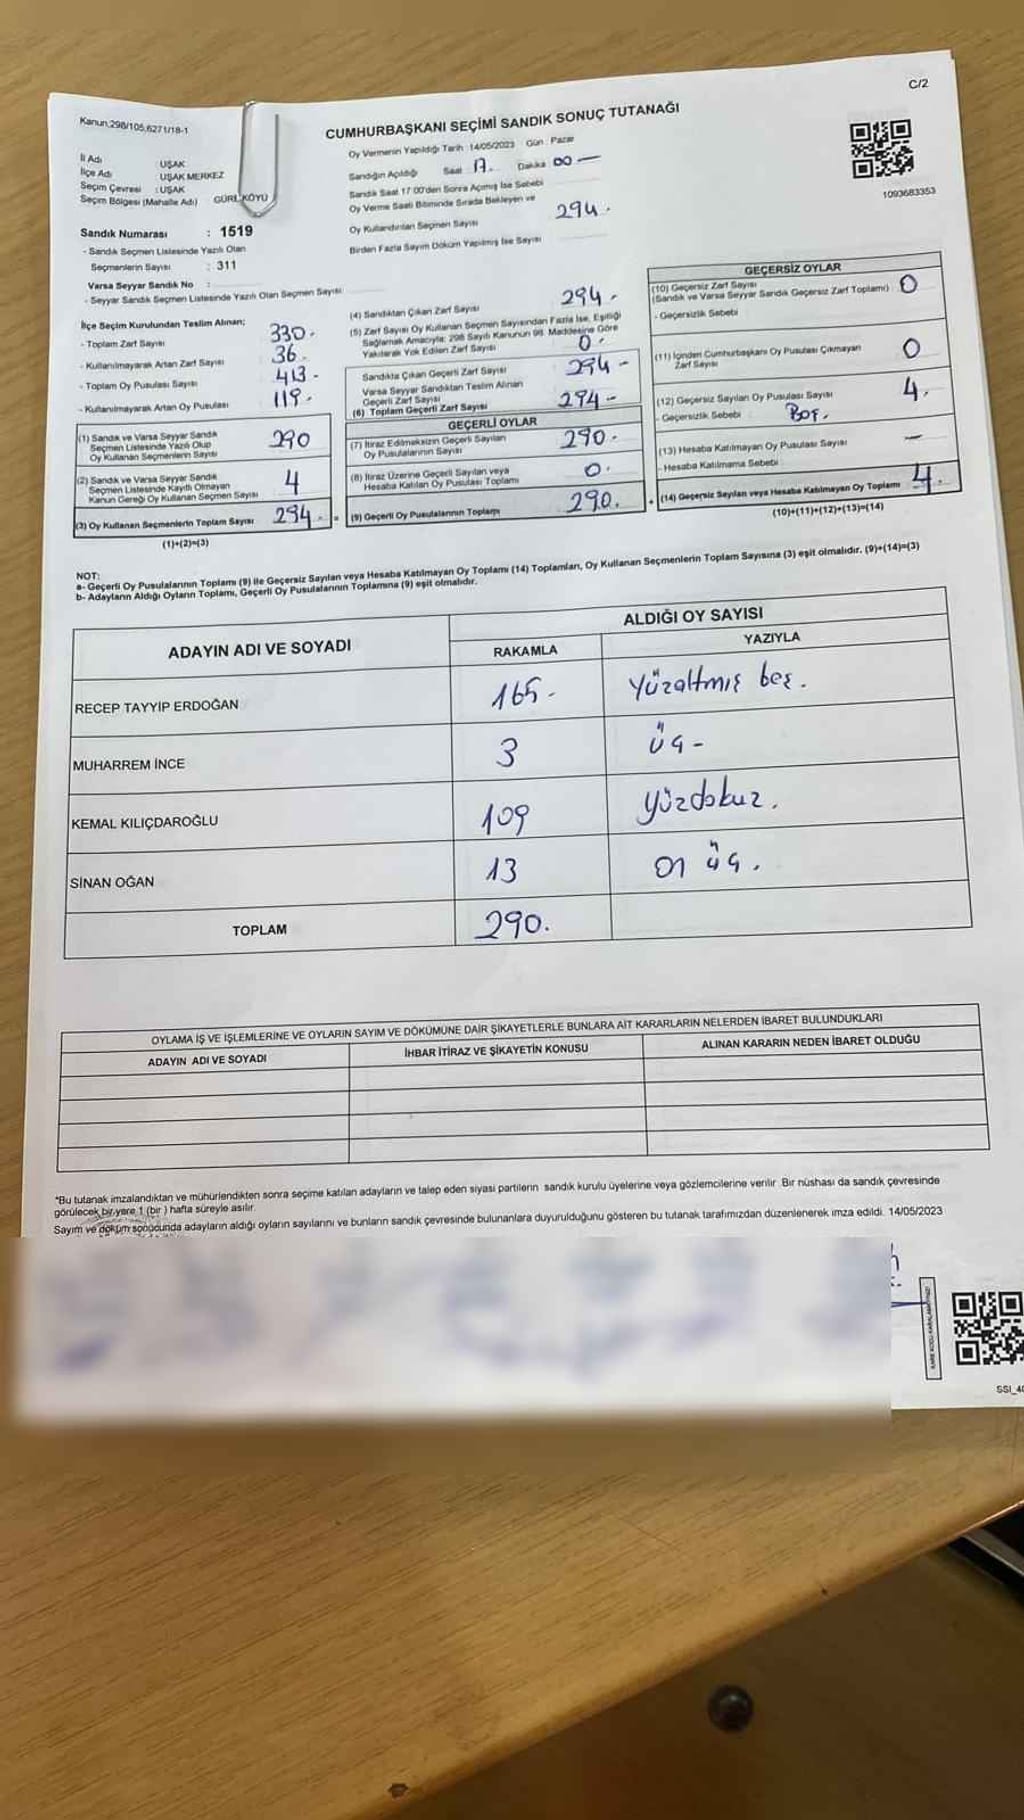 C/2
Kanun:298/105,6271/18-1
CUMHURBAŞKANI SEÇİMİ SANDIK SONUÇ TUTANAĞI
İl Adı : UŞAK
İlçe Adı : UŞAK MERKEZ
Seçim Çevresi : UŞAK
Seçim Bölgesi (Mahalle Adı) GÜRE KÖYÜ
Sandık Numarası : 1519
- Sandık Seçmen Listesinde Yazılı Olan
Seçmenlerin Sayısı : 311
Varsa Seyyar Sandık No :
- Seyyar Sandık Seçmen Listesinde Yazılı Olan Seçmen Sayısı
Oy Vermenin Yapıldığı Tarih 14/05/2023 Gün : Pazar
Sandığın Açıldığı Saat 17. Dakika 00
Sandık Saat 17:00'den Sonra Açılmış İse Sebebi
Oy Verme Saati Bitiminde Sırada Bekleyen ve
Oy Kullandırılan Seçmen Sayısı 294.
Birden Fazla Sayım Döküm Yapılmış İse Sayısı
1093683353
İlçe Seçim Kurulundan Teslim Alınan;
- Toplam Zarf Sayısı 330.
- Kullanılmayarak Artan Zarf Sayısı 36.
- Toplam Oy Pusulası Sayısı 413-
- Kullanılmayarak Artan Oy Pusulası 119.
(1) Sandık ve Varsa Seyyar Sandık
Seçmen Listesinde Yazılı Olup
Oy Kullanan Seçmenlerin Sayısı 290
(2) Sandık ve Varsa Seyyar Sandık
Seçmen Listesinde Kayıtlı Olmayan
Kanun Gereği Oy Kullanan Seçmen Sayısı 4
(3) Oy Kullanan Seçmenlerin Toplam Sayısı 294. =
(1)+(2)=(3)
(4) Sandıktan Çıkan Zarf Sayısı 294.
(5) Zarf Sayısı Oy Kullanan Seçmen Sayısından Fazla İse, Eşitliği
Sağlamak Amacıyla; 298 Sayılı Kanunun 98. Maddesine Göre
Yakılarak Yok Edilen Zarf Sayısı 0.
Sandıkta Çıkan Geçerli Zarf Sayısı 294-
Varsa Seyyar Sandıktan Teslim Alınan
Geçerli Zarf Sayısı
(6) Toplam Geçerli Zarf Sayısı 294-
GEÇERLİ OYLAR
(7) İtiraz Edilmeksizin Geçerli Sayılan
Oy Pusulalarının Sayısı 290.
(8) İtiraz Üzerine Geçerli Sayılan veya
Hesaba Katılan Oy Pusulası Toplamı 0.
(9) Geçerli Oy Pusulalarının Toplamı 290. +
GEÇERSİZ OYLAR
(10) Geçersiz Zarf Sayısı 0
(Sandık ve Varsa Seyyar Sandık Geçersiz Zarf Toplamı)
- Geçersizlik Sebebi
(11) İçinden Cumhurbaşkanı Oy Pusulası Çıkmayan
Zarf Sayısı 0
(12) Geçersiz Sayılan Oy Pusulası Sayısı 4.
- Geçersizlik Sebebi Boş.
(13) Hesaba Katılmayan Oy Pusulası Sayısı —
- Hesaba Katılmama Sebebi
(14) Geçersiz Sayılan veya Hesaba Katılmayan Oy Toplamı 4.
(10)+(11)+(12)+(13)=(14)
NOT:
a- Geçerli Oy Pusulalarının Toplamı (9) ile Geçersiz Sayılan veya Hesaba Katılmayan Oy Toplamı (14) Toplamları, Oy Kullanan Seçmenlerin Toplam Sayısına (3) eşit olmalıdır. (9)+(14)=(3)
b- Adayların Aldığı Oyların Toplamı, Geçerli Oy Pusulalarının Toplamına (9) eşit olmalıdır.
ADAYIN ADI VE SOYADI ALDIĞI OY SAYISI
RAKAMLA YAZIYLA
RECEP TAYYİP ERDOĞAN 165- Yüzaltmış beş.
MUHARREM İNCE 3 üç-
KEMAL KILIÇDAROĞLU 109 yüzdokuz.
SİNAN OĞAN 13 on üç.
TOPLAM 290.
OYLAMA İŞ VE İŞLEMLERİNE VE OYLARIN SAYIM VE DÖKÜMÜNE DAİR ŞİKAYETLERLE BUNLARA AİT KARARLARIN NELERDEN İBARET BULUNDUKLARI
ADAYIN ADI VE SOYADI İHBAR İTİRAZ VE ŞİKAYETİN KONUSU ALINAN KARARIN NEDEN İBARET OLDUĞU
*Bu tutanak imzalandıktan ve mühürlendikten sonra seçime katılan adayların ve talep eden siyasi partilerin sandık kurulu üyelerine veya gözlemcilerine verilir. Bir nüshası da sandık çevresinde
görülecek bir yere 1 (bir ) hafta süreyle asılır.
Sayım ve döküm sonucunda adayların aldığı oyların sayılarını ve bunların sandık çevresinde bulunanlara duyurulduğunu gösteren bu tutanak tarafımızdan düzenlenerek imza edildi. 14/05/2023